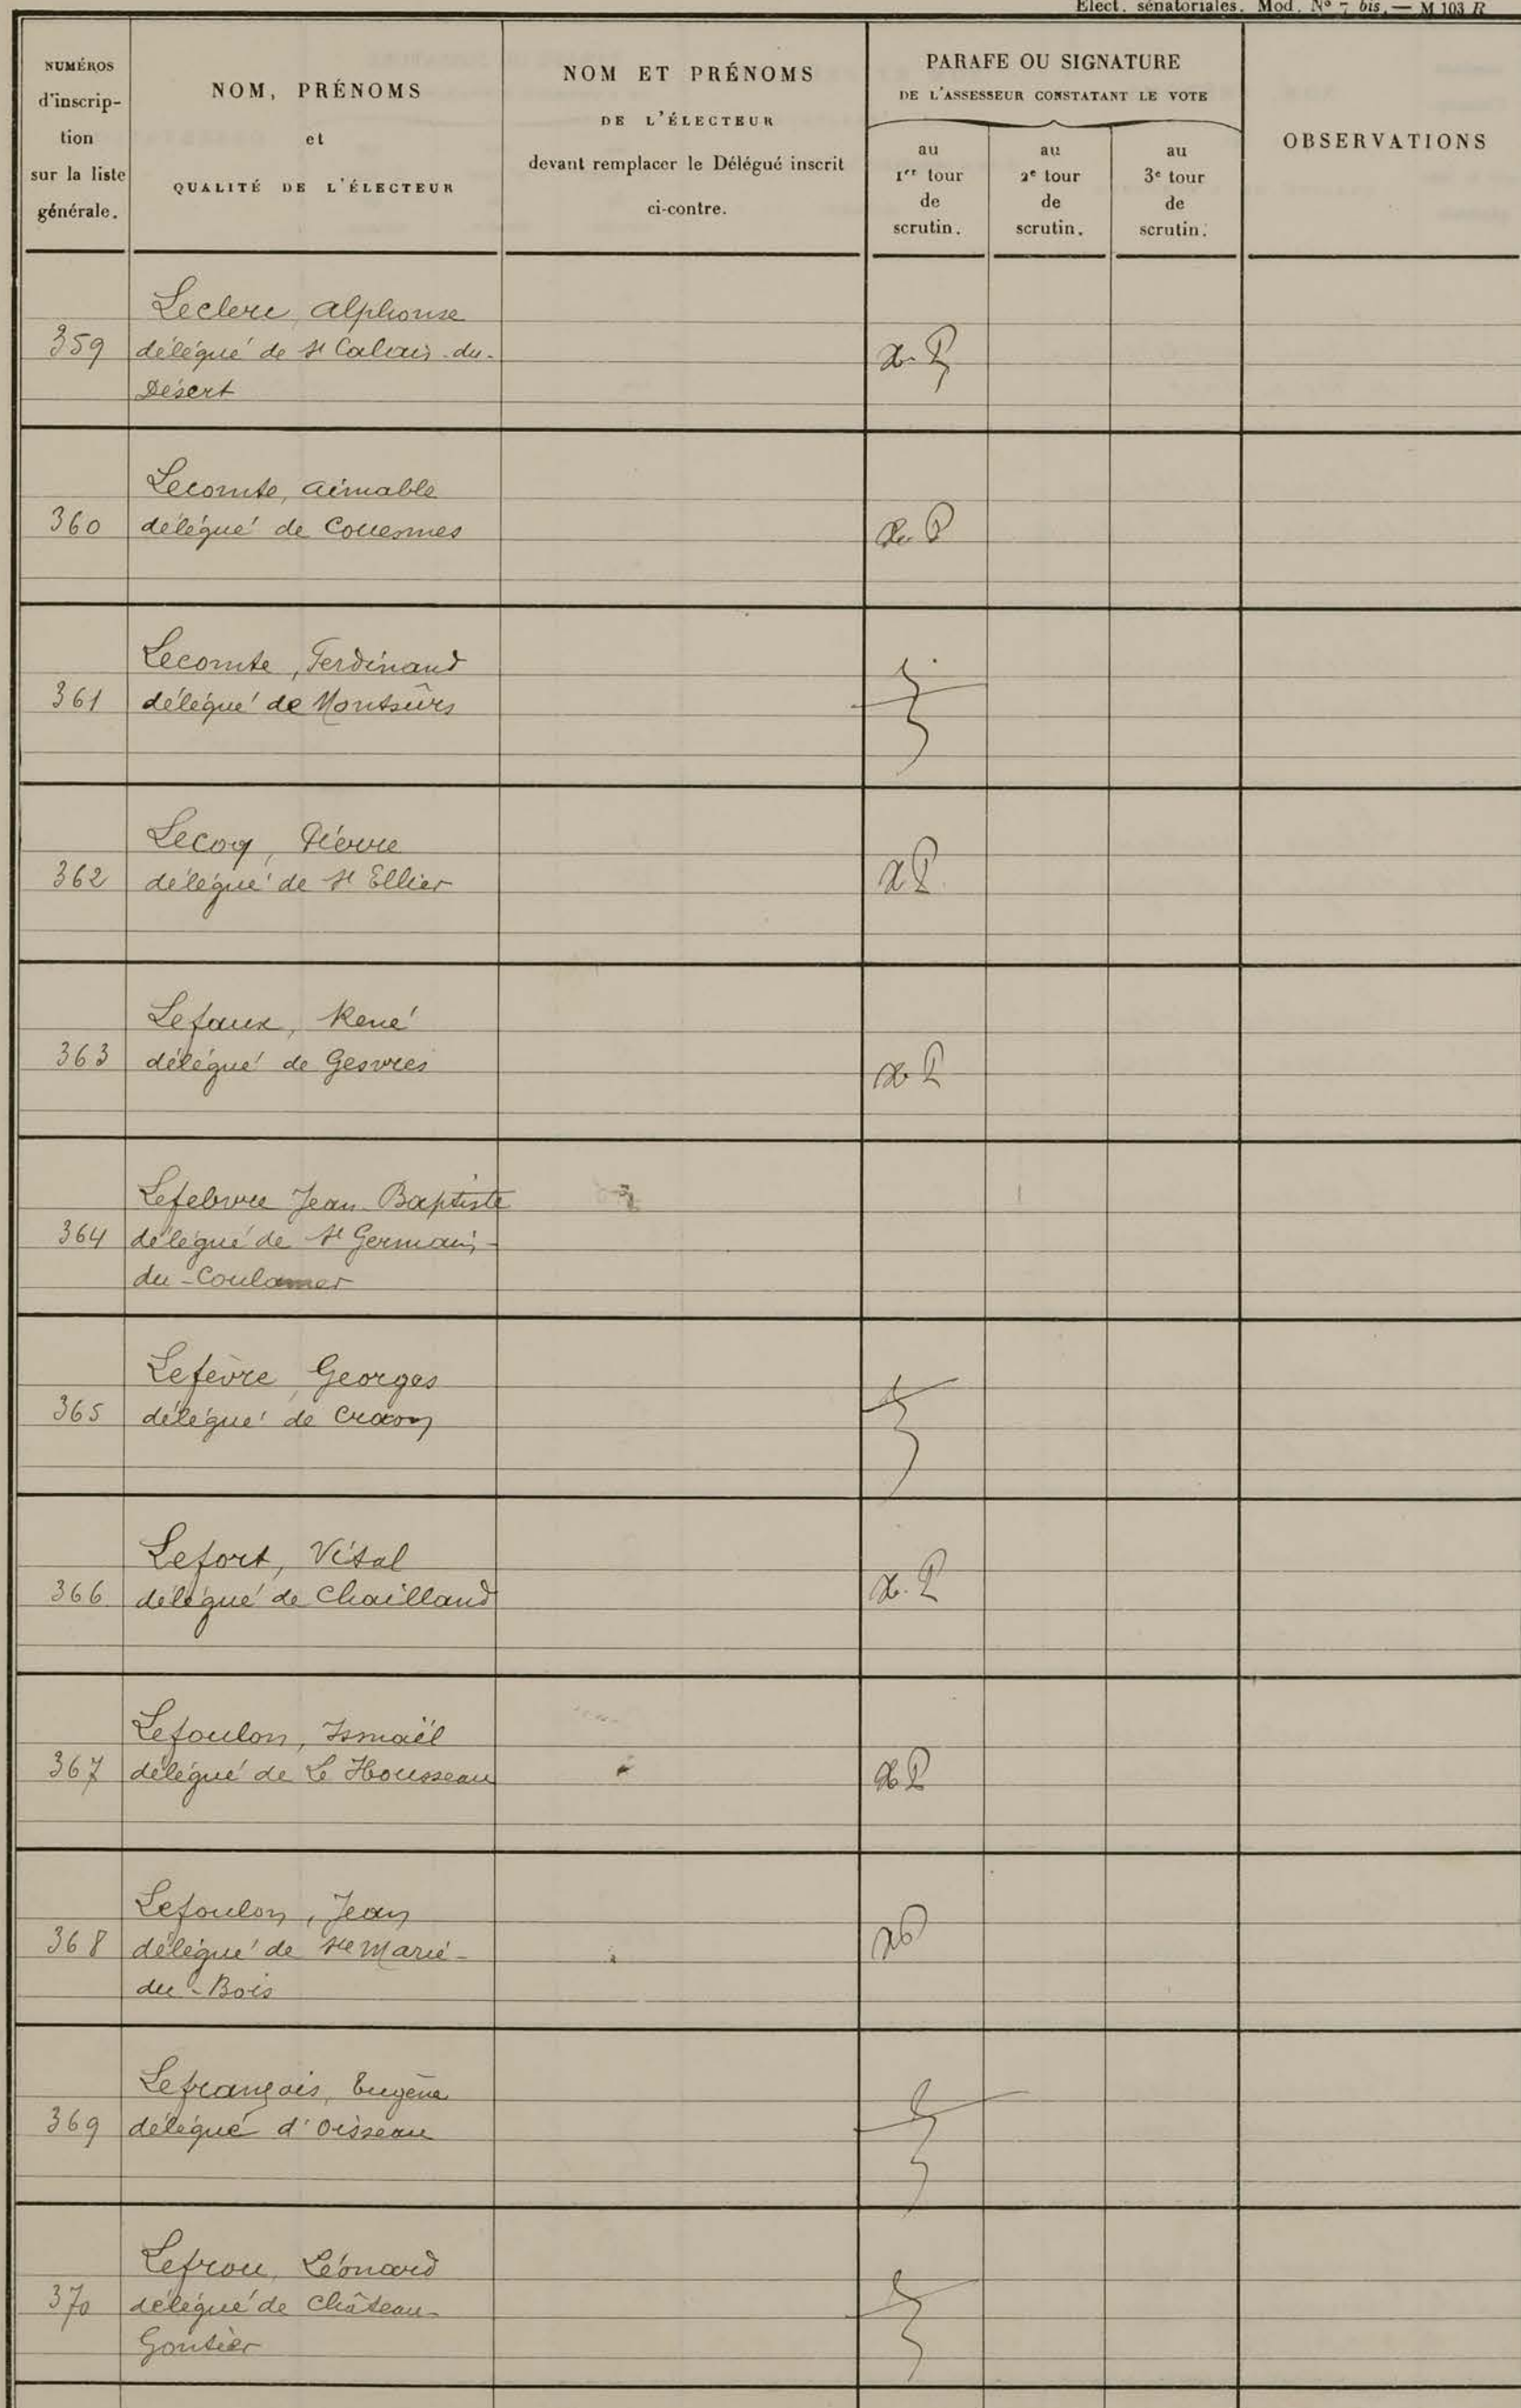 Élect. sénatoriales. Mod. Nº 7 bis. — M 103 R
NUMÉROS
d'inscrip-
tion
sur la liste
générale.
NOM, PRÉNOMS
et
QUALITÉ DE L'ÉLECTEUR
NOM ET PRÉNOMS
DE L'ÉLECTEUR
devant remplacer le Délégué inscrit
ci-contre.
PARAFE OU SIGNATURE
DE L'ASSESSEUR CONSTATANT LE VOTE
au
1er tour
de
scrutin.
au
2e tour
de
scrutin.
au
3e tour
de
scrutin.
OBSERVATIONS
Leclerc, Alphonse
359 délégué de St Calais-du-
Désert
Lecomte, Aimable
360 délégué de Couesmes
Lecomte, Ferdinand
361 délégué de Montsûrs
Lecoq, Pierre
362 délégué de St Ellier
Lefaux, René
363 délégué de Gesvres
Lefebvre Jean-Baptiste
364 délégué de St Germain-
du-Coulamer
Lefèvre, Georges
365 délégué de Craon
Lefort, Vital
366 délégué de Chailland
Lefoulon, Ismaël
367 délégué de Le Housseau
Lefoulon, Jean
368 délégué de Ste Marie-
du-Bois
Lefrançois, Eugène
369 délégué d'Oisseau
Lefrou, Léonard
370 délégué de Château-
Gontier